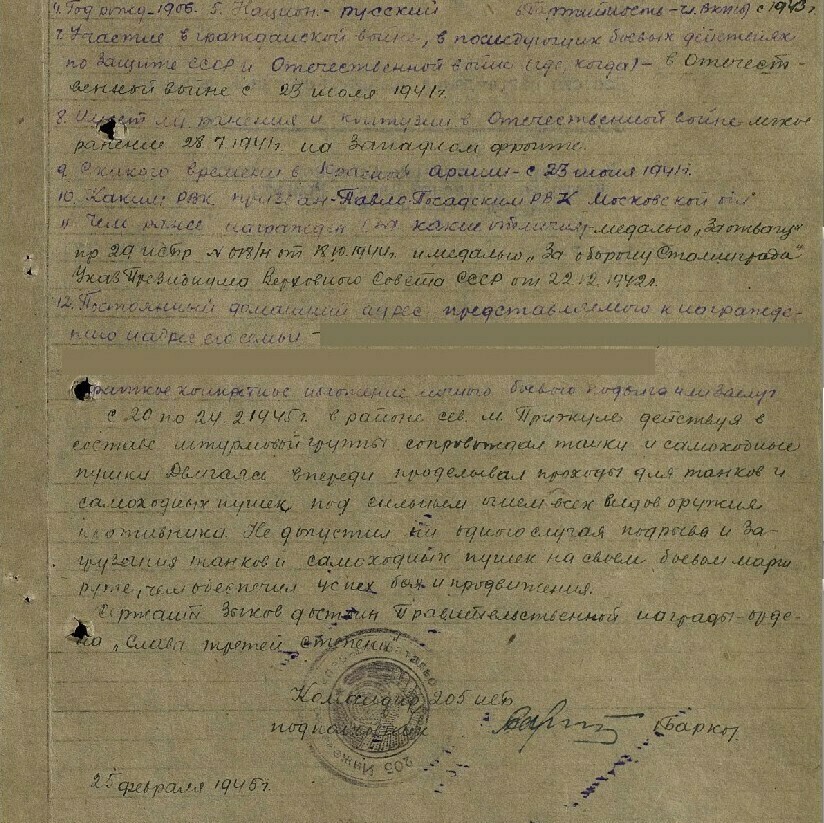 4. Год рожд.-1906. 5. Национ.- русский партийность-чл.вкп(б) с 1943г.
7. Участие в гражданской войне, в последующих боевых действиях
по защите СССР и Отечественной войне (где, когда)- в Отечест-
венной войне с 23 июля 1941г.
8. Имеет ли ранения и контузии в Отечественной войне легкое
ранение 28.7.1941г. на Западном фронте.
9. С какого времени в Красной армии- с 23 июня 1941г.
10. Каким РВК призван-Павло-Посадским РВК Московской обл
11. Чем ранее награжден (за какие отличия)-медалью „За отвагу"
пр 29 истр №018/н от 18.10.1944г. и медалью „За оборону Сталинграда"
Указ Президиума Верховного Совета СССР от 22.12.1942г.
12. Постоянный домашний адрес представляемого к награжде-
нию и адрес его семьи -
Краткое конкретное изложение личного боевого подвига или заслуг
с 20 по 24.2.1945г. в районе сев. м. Прикуле действуя в
составе штурмовой группы сопровождал танки и самоходные
пушки Двигаясь впереди проделывал проходы для танков и
самоходных пушек под сильным огнем всех видов оружия
противника. Не допустил ни одного случая подрыва и за-
грузания танков и самоходных пушек на своем боевом марш
руте, чем обеспечил успех боя и продвижения.
Сержант Зыков достоин Правительственной награды-орде-
на „Слава третей степени"
Командир 205 исб
подполковник (Барко
25 февраля 1945г.